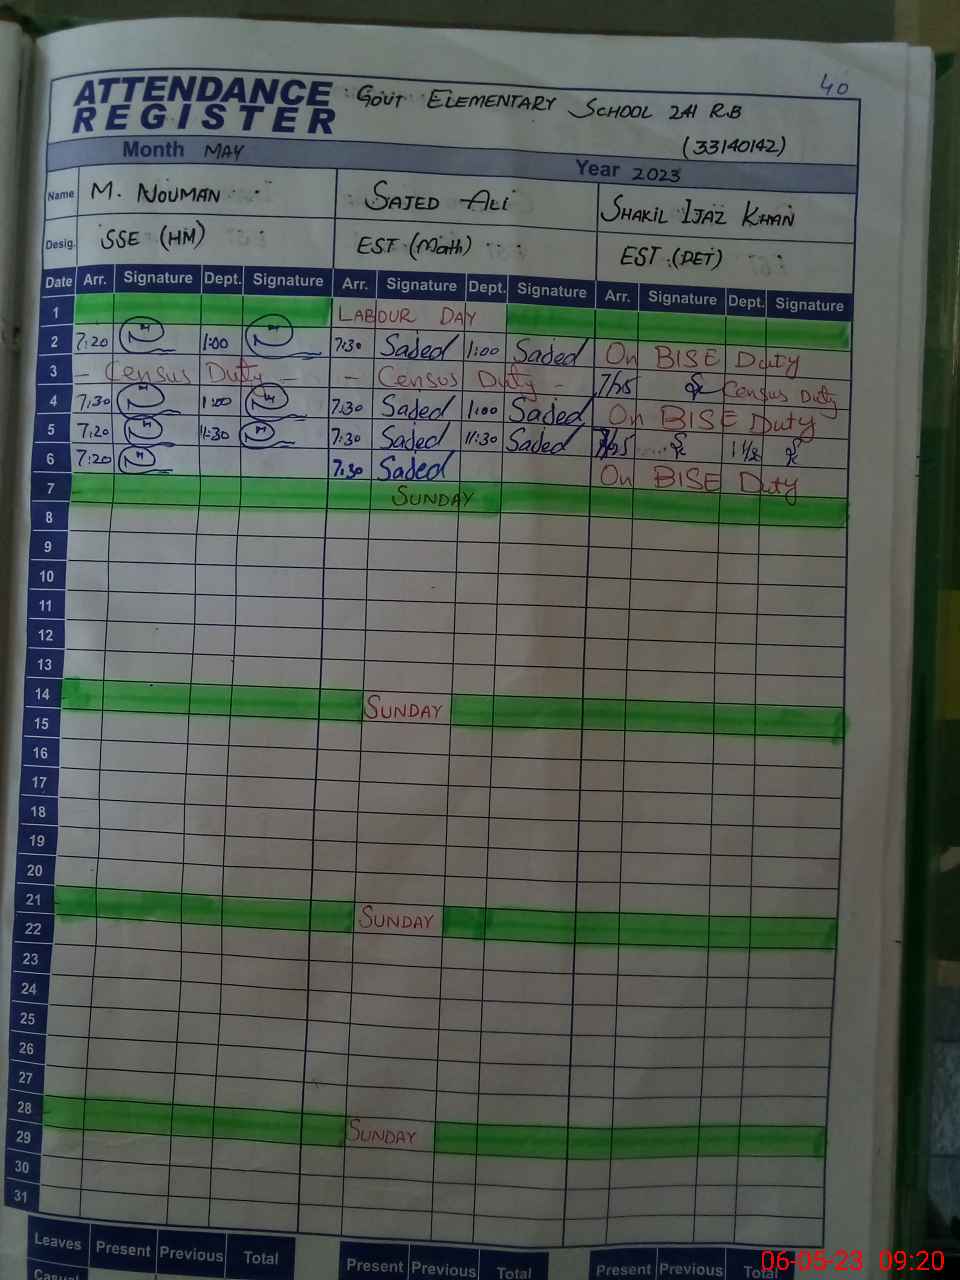 40
ATTENDANCE REGISTER GOVT ELEMENTARY SCHOOL 241 R.B
(33140142)
Month MAY Year 2023
Name M. NOUMAN SAJED ALI SHAKIL IJAZ KHAN
Desig. SSE (HM) EST (Math) EST (DET)
Date Arr. Signature Dept. Signature Arr. Signature Dept. Signature Arr. Signature Dept. Signature
1 LABOUR DAY
2 7:20 1:00 7:30 Sajed 1:00 Sajed On BISE Duty
3 - Census Duty - - Census Duty - 7/25 Census Duty
4 7:30 1:00 7:30 Sajed 1:00 Sajed On BISE Duty
5 7:20 11:30 7:30 Sajed 11:30 Sajed
6 7:20 7:30 Sajed On BISE Duty
7 SUNDAY
8
9
10
11
12
13
14 SUNDAY
15
16
17
18
19
20
21 SUNDAY
22
23
24
25
26
27
28 SUNDAY
29
30
31
Leaves Present Previous Total Present Previous Total Present Previous Total
Casual
06-05-23 09:20